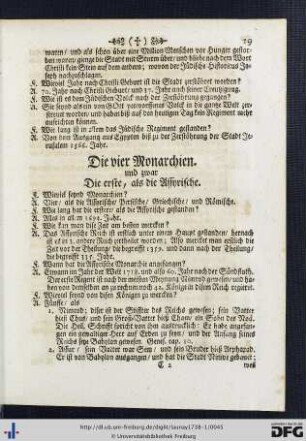 ( † ) 19
waren/ und als schon über eine Million Menschen vor Hunger gestor-
ben waren/ gienge die Stadt mit Sturm über/ und bliebe nach dem Wort
Christi kein Stein auf dem andern; wovon der Jüdische Historicus Jo-
seph nachzuschlagen.
F. Wieviel Jahr nach Christi Geburt ist die Stadt zerstöhret worden?
A. 70. Jahr nach Christi Geburt/ und 37. Jahr nach seiner Creutzigung.
F. Wie ist es dem Jüdischen Volck nach der Zerstöhrung gegangen?
A. Sie seynd als ein von GOtt verworffenes Volck in die gantze Welt zer-
streuet worden/ und haben biß auf den heutigen Tag kein Regiment mehr
aufrichten können.
F. Wie lang ist in allem das Jüdisch Regiment gestanden?
A. Von dem Außgang aus Egypten biß zu der Zerstöhrung der Stadt Je-
rusalem 1566. Jahr.
Die vier Monarchien.
und zwar
Die erste, als die Assyrische.
F. Wieviel seynd Monarchien?
A. Vier/ als die Assyrische/ Persische/ Griechische/ und Römische.
F. Wie lang hat die erstere/ als die Assyrische gestanden?
A. Alles in allem 1695. Jahr.
F. Wie kan man dise Zeit am besten mercken?
A. Das Assyrische Reich ist erstlich unter einem Haupt gestanden/ hernach
ist es in 2. andere Reich zertheilet worden; Also mercket man erstlich die
Zeit vor der Theilung/ die begreifft 1559. und dann nach der Theilung/
die begreifft 135. Jahr.
F. Wann hat die Assyrische Monarchie angefangen?
A. Etwann im Jahr der Welt 1718. und also 60. Jahr nach der Sündfluth.
Der erste Regent ist nach der meisten Meynung Nimrod gewesen/ und ha-
ben von demselben an zu rechnen noch 42. König in disem Reich regiert.
F. Wieviel seynd von disen Königen zu mercken?
A. Fünffe/ als
1. Nimrod; diser ist der Stiffter des Reichs gewesen; sein Vatter
hieß Chus/ und sein Groß-Vatter hieß Cham/ ein Sohn des Noä.
Die Heil. Schrifft spricht von ihm ausdrucklich: Er habe angefan-
gen ein gewaltiger Herr auf Erden zu seyn/ und der Anfang seines
Reichs seye Babylon gewesen. Genes. cap. 10.
2. Assur; sein Vatter war Sem/ und sein Bruder hieß Arphaxad.
Er ist von Babylon ausgangen/ und hat die Stadt Ninive gebauet;
C 2 weil
http://dl.ub.uni-freiburg.de/diglit/launay1738-1/0045
© Universitätsbibliothek Freiburg
gefördert durch die
DFG